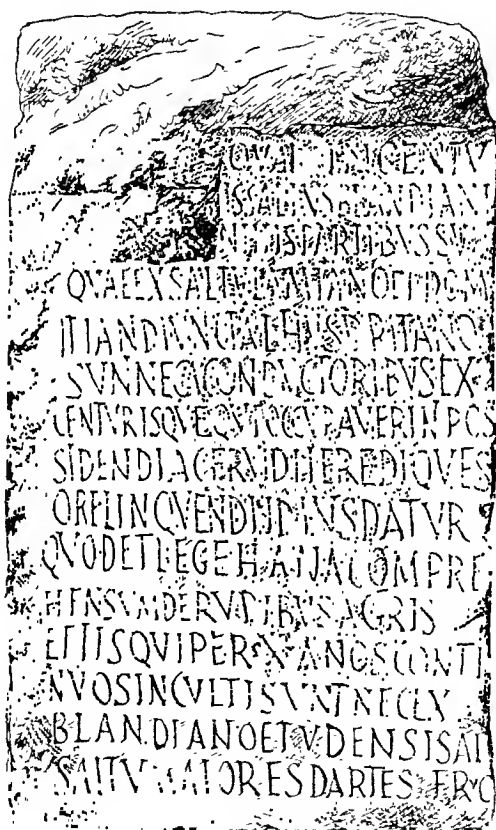 QVAE IN CENTV
ISSALTVSBLANDIANI
INILLISPARTIBVSSVN
QVAEEXSALTVLAMIANOETDOM
ITIANOIVNCTAETHVSDRITANO
SVNNECACONDVCTORIBVSEX
CENTVRISQVEQVIOCCVPAVERINPOS
SIDENDIACFRVIDIIEREDIQVES
ORELINQVENDIIDIVSDATVR
QVODETLEGEHAIIACOMPRE
HENSVMDERVDIBVSAGRIS
ETIISQVIPERXANOSCONTI
NVOSINCVLTISVNTNECEX
BLANDIANOETVDENSISAI
SALTVMAIORESDARTES FRVC